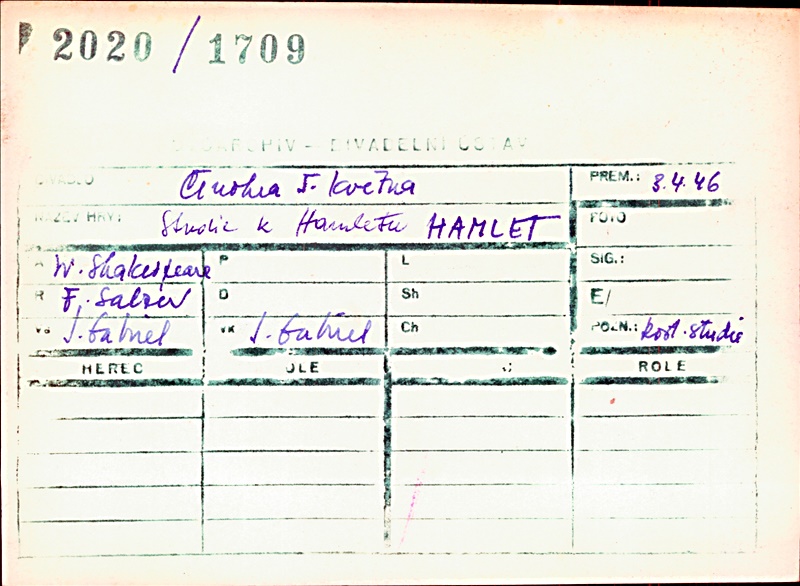 2020 / 1709
DIVADELNÍ ÚSTAV
DIVADLO Činohra 5. května PREM.: 3.4.46
NÁZEV HRY: Studie k Hamletu HAMLET FOTO
A W. Shakespeare P L SIG.:
R F. Salzer D Sh E/
Vd J. Gabriel Vk J. Gabriel Ch POZN.: kost. studie
HEREC ROLE